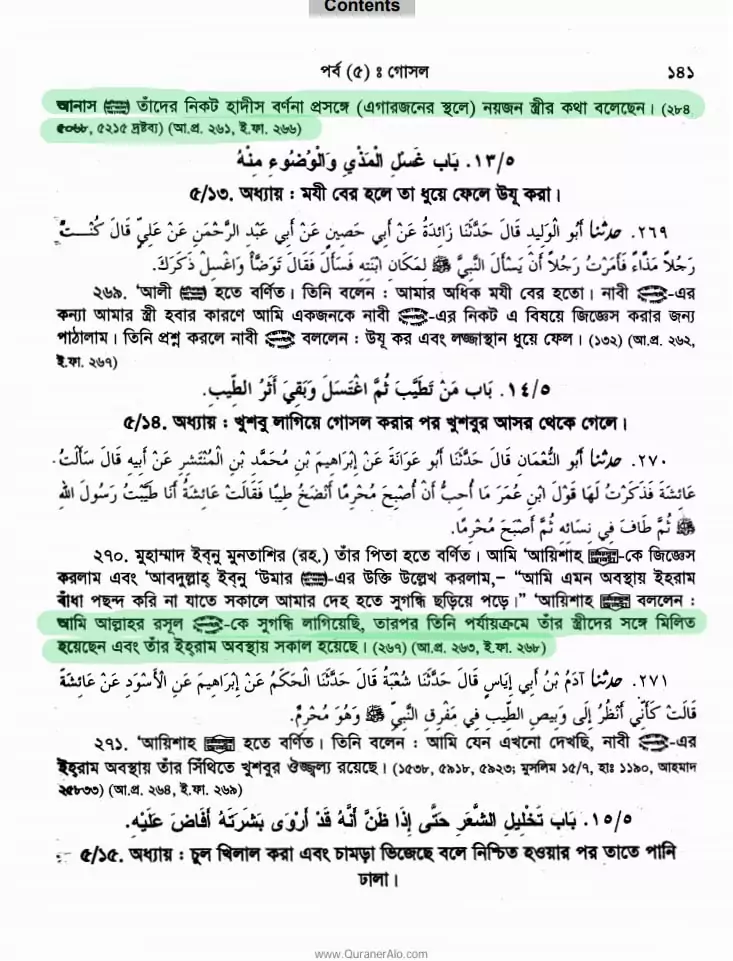 Contents
পর্ব (৫) ঃ গোসল ১৪১
আনাস তাঁদের নিকট হাদীস বর্ণনা প্রসঙ্গে (এগারজনের স্থলে) নয়জন স্ত্রীর কথা বলেছেন। (২৮৪
৫০৬৮, ৫২১৫ দ্রষ্টব্য) (আ.প্র. ২৬১, ই.ফা. ২৬৬)
١٣/٥. بَاب غَسْلِ الْمَذْيِ وَالْوُضُوءِ مِنْهُ
৫/১৩. অধ্যায় : মযী বের হলে তা ধুয়ে ফেলে উযূ করা।
٢٦٩. حدثنا أَبُو الْوَلِيدِ قَالَ حَدَّثَنَا زَائِدَةُ عَنْ أَبِي حَصِينٍ عَنْ أَبِي عَبْدِ الرَّحْمَنِ عَنْ عَلِيٍّ قَالَ كُنْــتُ
رَجُلاً مَذَّاءً فَأَمَرْتُ رَجُلاً أَنْ يَسْأَلَ النَّبِيَّ ﷺ لِمَكَانِ ابْنَتِهِ فَسَأَلَ فَقَالَ تَوَضَّأْ وَاغْسِلْ ذَكَرَكَ.
২৬৯. ‘আলী হতে বর্ণিত। তিনি বলেন : আমার অধিক মযী বের হতো। নাবী -এর
কন্যা আমার স্ত্রী হবার কারণে আমি একজনকে নাবী -এর নিকট এ বিষয়ে জিজ্ঞেস করার জন্য
পাঠালাম। তিনি প্রশ্ন করলে নাবী বললেন : উযূ কর এবং লজ্জাস্থান ধুয়ে ফেল। (১৩২) (আ.প্র. ২৬২,
ই.ফা. ২৬৭)
١٤/٥. بَاب مَنْ تَطَيَّبَ ثُمَّ اغْتَسَلَ وَبَقِيَ أَثَرُ الطِّيبِ.
৫/১৪. অধ্যায় : খুশবু লাগিয়ে গোসল করার পর খুশবুর আসর থেকে গেলে।
٢٧٠. حدثنا أَبُو النُّعْمَانِ قَالَ حَدَّثَنَا أَبُو عَوَانَةَ عَنْ إِبْرَاهِيمَ بْنِ مُحَمَّدِ بْنِ الْمُنْتَشِرِ عَنْ أَبِيهِ قَالَ سَأَلْتُ
عَائِشَةَ فَذَكَرْتُ لَهَا قَوْلَ ابْنِ عُمَرَ مَا أُحِبُّ أَنْ أُصْبِحَ مُحْرِمًا أَنْضَخُ طِيبًا فَقَالَتْ عَائِشَةُ أَنَا طَيَّبْتُ رَسُولَ اللهِ
ﷺ ثُمَّ طَافَ فِي نِسَائِهِ ثُمَّ أَصْبَحَ مُحْرِمًا.
২৭০. মুহাম্মাদ ইবনু মুনতাশির (রহ.) তাঁর পিতা হতে বর্ণিত। আমি ‘আয়িশাহ -কে জিজ্ঞেস
করলাম এবং ‘আবদুল্লাহ্ ইবনু ‘উমার -এর উক্তি উল্লেখ করলাম,– “আমি এমন অবস্থায় ইহরাম
বাঁধা পছন্দ করি না যাতে সকালে আমার দেহ হতে সুগন্ধি ছড়িয়ে পড়ে।” ‘আয়িশাহ বললেন :
আমি আল্লাহর রসূল -কে সুগন্ধি লাগিয়েছি, তারপর তিনি পর্যায়ক্রমে তাঁর স্ত্রীদের সঙ্গে মিলিত
হয়েছেন এবং তাঁর ইহ্‌রাম অবস্থায় সকাল হয়েছে। (২৬৭) (আ.প্র. ২৬৩, ই.ফা. ২৬৮)
٢٧١. حدثنا آدَمُ بْنُ أَبِي إِيَاسٍ قَالَ حَدَّثَنَا شُعْبَةُ قَالَ حَدَّثَنَا الْحَكَمُ عَنْ إِبْرَاهِيمَ عَنِ الأَسْوَدِ عَنْ عَائِشَةَ
قَالَتْ كَأَنِّي أَنْظُرُ إِلَى وَبِيصِ الطِّيبِ فِي مَفْرِقِ النَّبِيِّ ﷺ وَهُوَ مُحْرِمٌ.
২৭১. ‘আয়িশাহ হতে বর্ণিত। তিনি বলেন : আমি যেন এখনো দেখছি, নাবী -এর
ইহরাম অবস্থায় তাঁর সিঁথিতে খুশবুর ঔজ্জ্বল্য রয়েছে। (১৫৩৮, ৫৯১৮, ৫৯২৩; মুসলিম ১৫/৭, হাঃ ১১৯০, আহমাদ
২৫৮৩৩) (আ.প্র. ২৬৪, ই.ফা. ২৬৯)
١٥/٥. بَاب تَخْلِيلِ الشَّعَرِ حَتَّى إِذَا ظَنَّ أَنَّهُ قَدْ أَرْوَى بَشَرَتَهُ أَفَاضَ عَلَيْهِ.
৫/১৫. অধ্যায় : চুল খিলাল করা এবং চামড়া ভিজেছে বলে নিশ্চিত হওয়ার পর তাতে পানি
ঢালা।
www.QuranerAlo.com